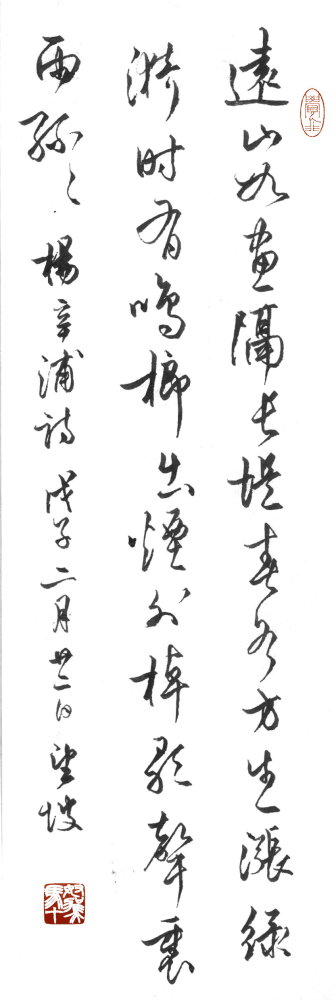 遠山如畫隔長堤春水方生漲綠
漪時有鳴榔出煙外棹歌聲裏
雨絲〻楊辛浦詩戊子二月廿二日望坡